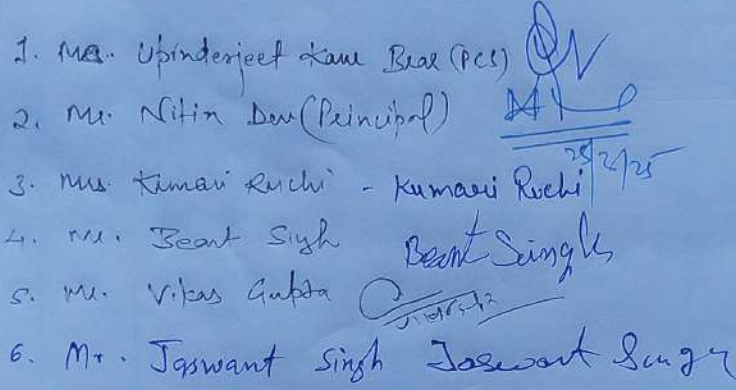 1. Mrs. Upinderjeet Kaur Brar (PCS)
2. Mr. Nitin Dev (Principal)
25/2/25
3. Mrs. Kumari Ruchi - Kumari Ruchi
4. Mr. Beant Singh Beant Singh
5. Mr. Vikas Gupta
6. Mr. Jaswant Singh Jaswant Singh